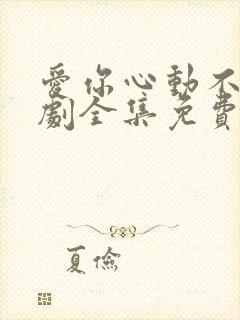 愛你心動不
劇全集免費
夏儉